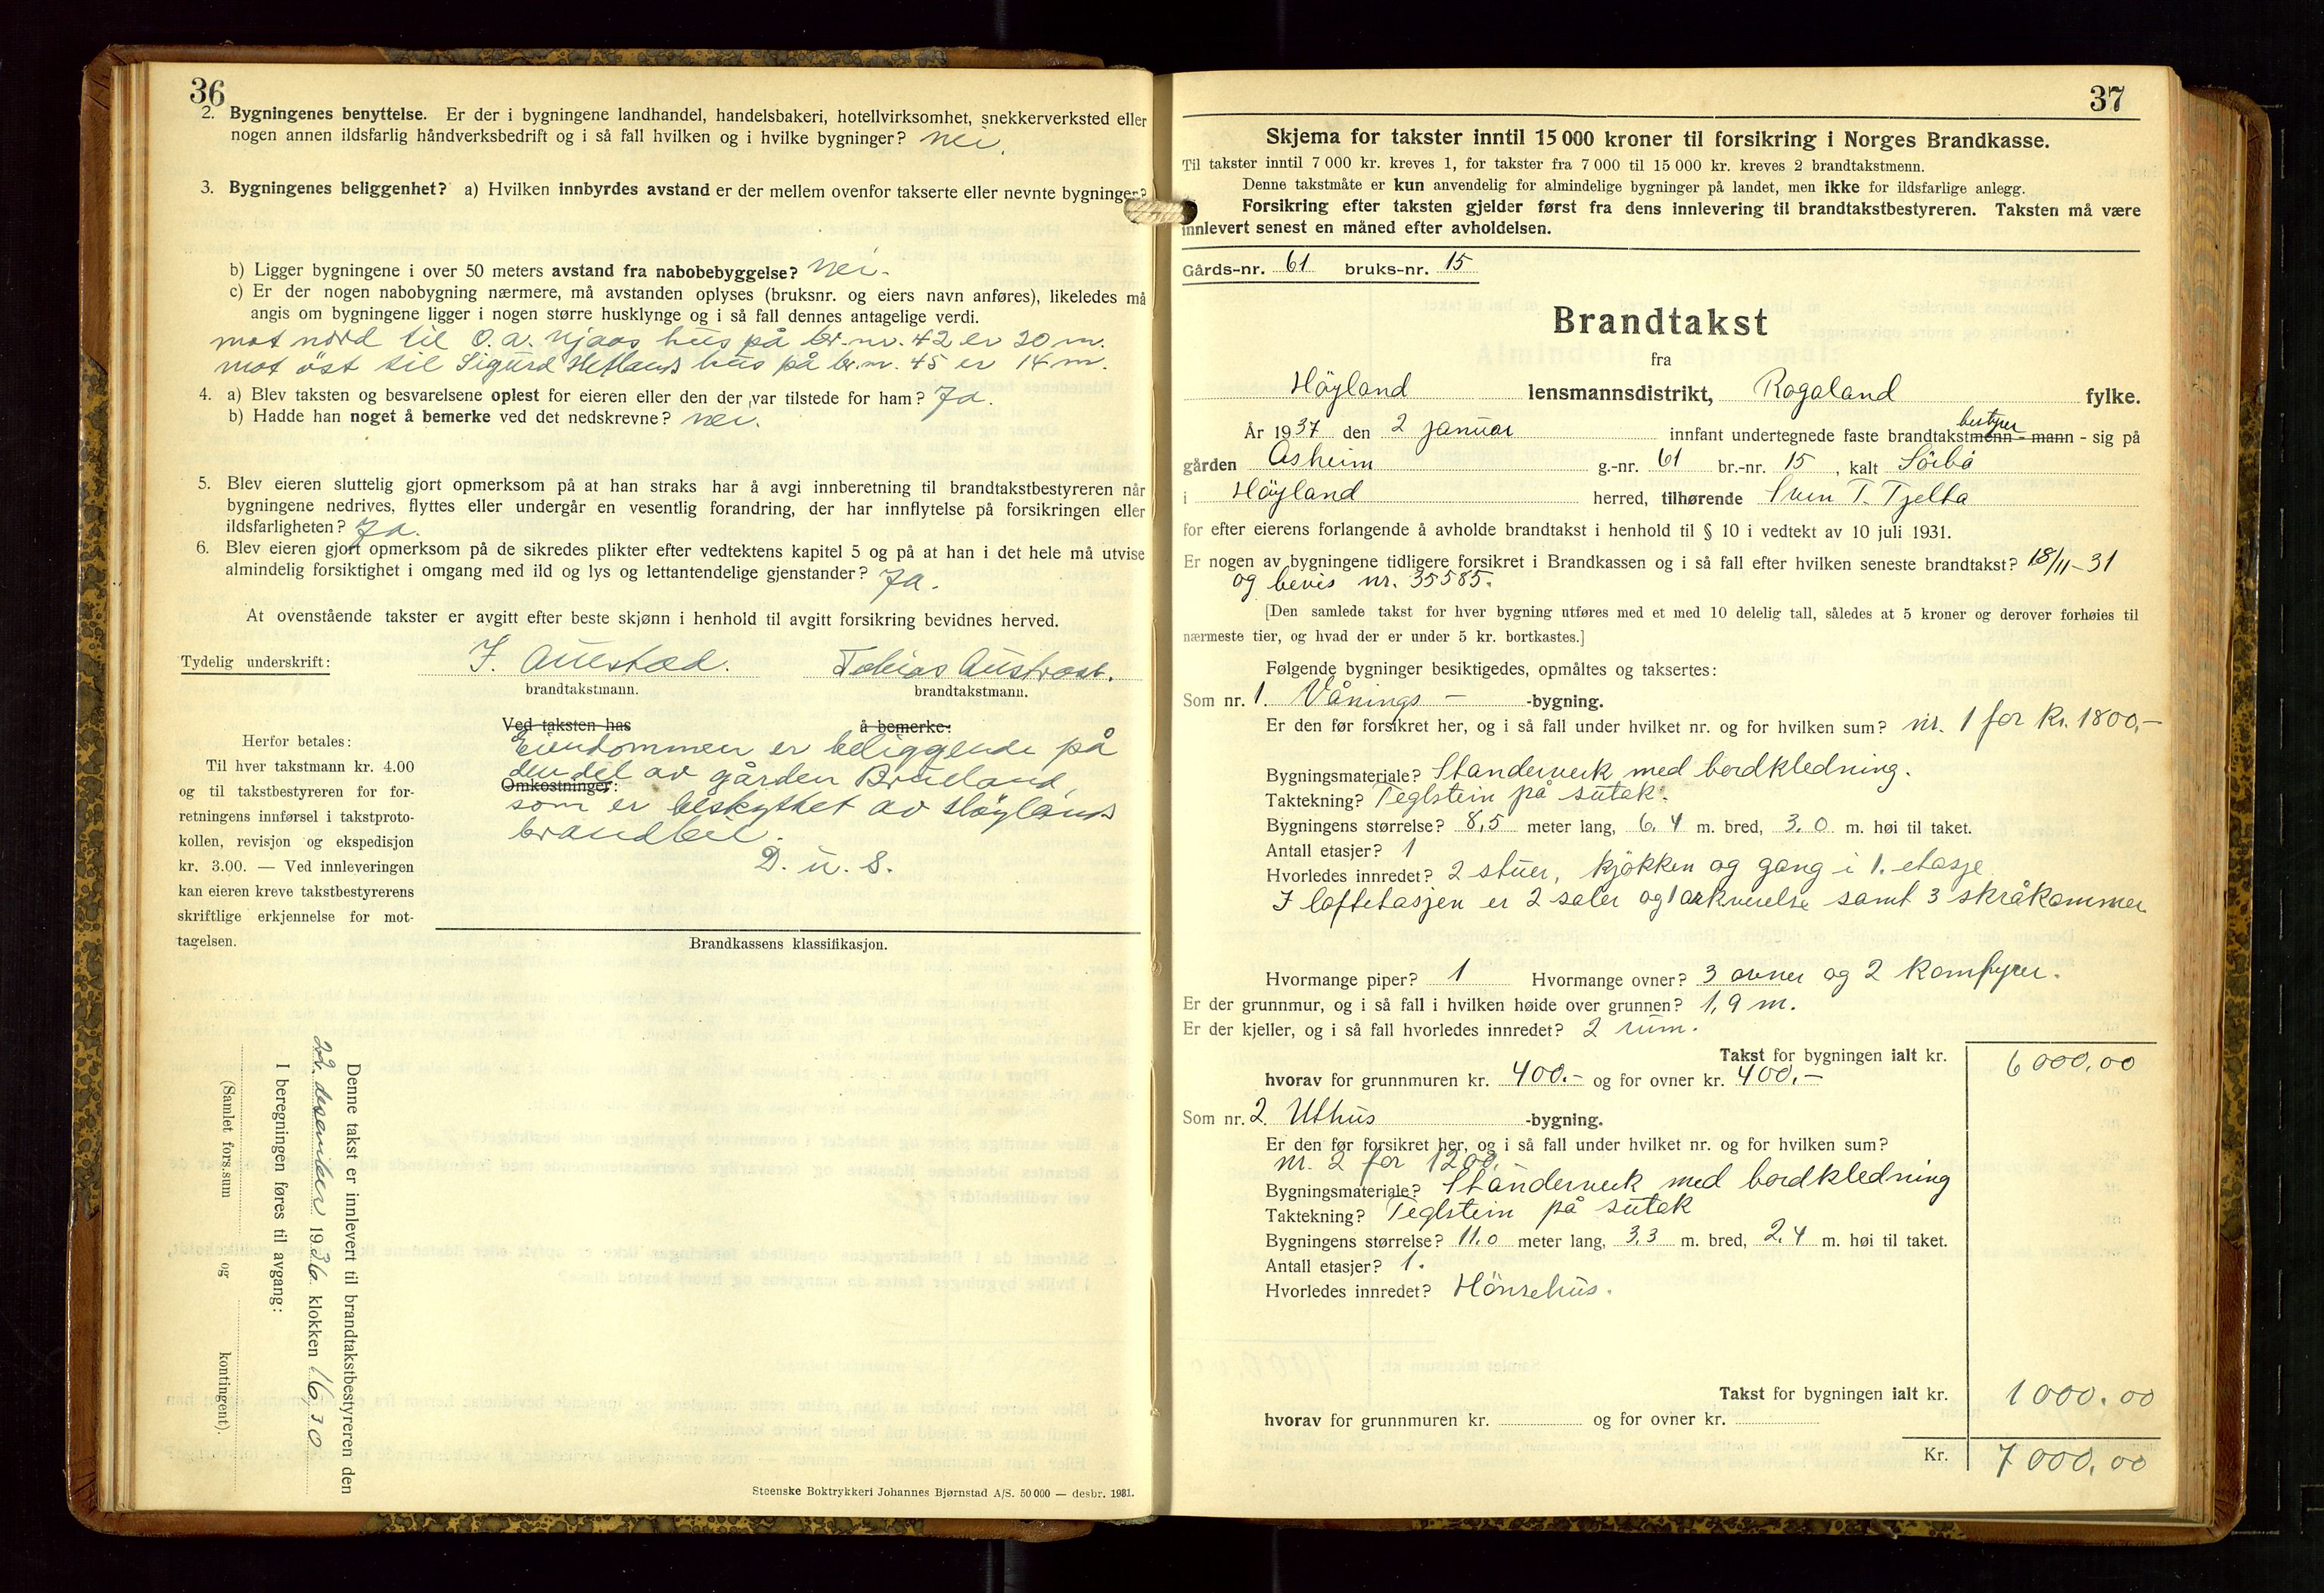 36
2. Bygningenes benyttelse. Er der i bygningene landhandel, handelsbakeri, hotellvirksomhet, snekkerverksted eller
nogen annen ildsfarlig håndverksbedrift og i så fall hvilken og i hvilke bygninger? nei.
3. Bygningenes beliggenhet? a) Hvilken innbyrdes avstand er der mellem ovenfor takserte eller nevnte bygninger?
b) Ligger bygningene i over 50 meters avstand fra nabobebyggelse? nei.
c) Er der nogen nabobygning nærmere, må avstanden oplyses (bruksnr. og eiers navn anføres), likeledes må
angis om bygningene ligger i nogen større husklynge og i så fall dennes antagelige verdi.
mot nord til O. A. Njaas hus på br.nr. 42 er 20 m.
mot øst til Sigurd Hetlands hus på br.nr. 45 er 14 m.
4. a) Blev taksten og besvarelsene oplest for eieren eller den der var tilstede for ham? Ja.
b) Hadde han noget å bemerke ved det nedskrevne? nei.
5. Blev eieren sluttelig gjort opmerksom på at han straks har å avgi innberetning til brandtakstbestyreren når
bygningene nedrives, flyttes eller undergår en vesentlig forandring, der har innflytelse på forsikringen eller
ildsfarligheten? Ja.
6. Blev eieren gjort opmerksom på de sikredes plikter efter vedtektens kapitel 5 og på at han i det hele må utvise
almindelig forsiktighet i omgang med ild og lys og lettantendelige gjenstander? Ja.
At ovenstående takster er avgitt efter beste skjønn i henhold til avgitt forsikring bevidnes herved.
Tydelig underskrift: J. Auestad. Tobias Austrått.
brandtakstmann. brandtakstmann.
Ved taksten has å bemerke:
Eiendommen er beliggende på
den del av gården Brueland,
Omkostninger:
som er beskyttet av Høylands
brandbil.
D. u. s.
Herfor betales:
Til hver takstmann kr. 4.00
og til takstbestyreren for for-
retningens innførsel i takstproto-
kollen, revisjon og ekspedisjon
kr. 3.00. — Ved innleveringen
kan eieren kreve takstbestyrerens
skriftlige erkjennelse for mot-
tagelsen.
Brandkassens klassifikasjon.
Denne takst er innlevert til brandtakstbestyreren den
22. desember 1936. klokken 16,30
I beregningen føres til avgang:
(Samlet fors.sum og kontingent).
Steenske Boktrykkeri Johannes Bjørnstad A/S. 50 000 — desbr. 1931.
37
Skjema for takster inntil 15 000 kroner til forsikring i Norges Brandkasse.
Til takster inntil 7 000 kr. kreves 1, for takster fra 7 000 til 15 000 kr. kreves 2 brandtakstmenn.
Denne takstmåte er kun anvendelig for almindelige bygninger på landet, men ikke for ildsfarlige anlegg.
Forsikring efter taksten gjelder først fra dens innlevering til brandtakstbestyreren. Taksten må være
innlevert senest en måned efter avholdelsen.
Gårds-nr. 61 bruks-nr. 15
Brandtakst
fra
Høyland lensmannsdistrikt, Rogaland fylke.
bestyrer
År 1937 den 2 januar innfant undertegnede faste brandtakstmenn - mann - sig på
gården Åsheim g.-nr. 61 br.-nr. 15, kalt Sørbø
i Høyland herred, tilhørende Sven T. Tjelta
for efter eierens forlangende å avholde brandtakst i henhold til § 10 i vedtekt av 10 juli 1931.
Er nogen av bygningene tidligere forsikret i Brandkassen og i så fall efter hvilken seneste brandtakst? 18/11-31
og bevis nr. 35585.
[Den samlede takst for hver bygning utføres med et med 10 delelig tall, således at 5 kroner og derover forhøies til
nærmeste tier, og hvad der er under 5 kr. bortkastes.]
Følgende bygninger besiktigedes, opmåltes og taksertes:
Som nr. 1. Vånings- -bygning.
Er den før forsikret her, og i så fall under hvilket nr. og for hvilken sum? nr. 1 for kr. 1800,-
Bygningsmateriale? Standerverk med bordkledning.
Taktekning? Teglstein på sutak.
Bygningens størrelse? 8,5 meter lang, 6.4 m. bred, 3.0 m. høi til taket.
Antall etasjer? 1
Hvorledes innredet? 2 stuer, kjøkken og gang i 1. etasje
I loftetasjen er 2 saler og 1 arkverelse samt 3 skråkammer
Hvormange piper? 1 Hvormange ovner? 3 ovner og 2 komfyrer.
Er der grunnmur, og i så fall i hvilken høide over grunnen? 1,9 m.
Er der kjeller, og i så fall hvorledes innredet? 2 rum.
Takst for bygningen ialt kr. 6 000,00
hvorav for grunnmuren kr. 400.- og for ovner kr. 400.-
Som nr. 2. Uthus -bygning.
Er den før forsikret her, og i så fall under hvilket nr. og for hvilken sum?
nr. 2 for 1200.
Bygningsmateriale? Standerverk med bordkledning
Taktekning? Teglstein på sutak
Bygningens størrelse? 11.0 meter lang, 3,3 m. bred, 2.4 m. høi til taket.
Antall etasjer? 1.
Hvorledes innredet? Hønsehus.
Takst for bygningen ialt kr. 1 000.00
hvorav for grunnmuren kr. og for ovner kr.
Kr. 7 000,00